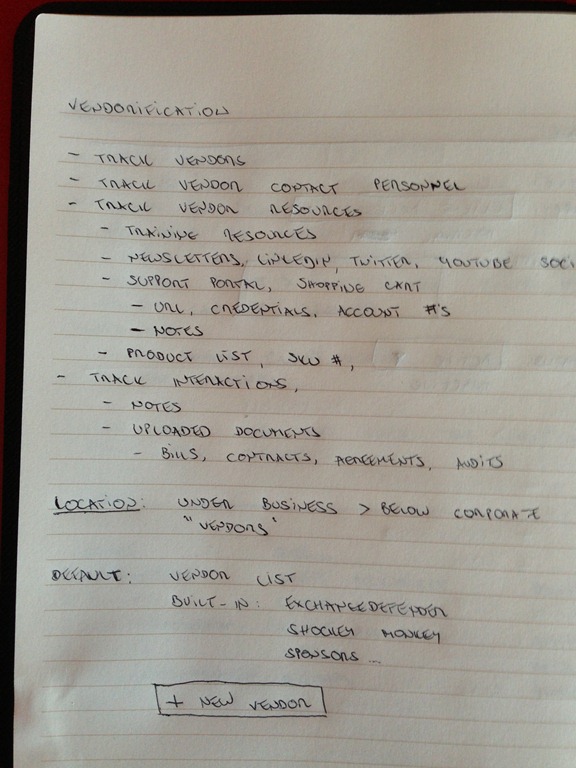 VENDORIFICATION
- TRACK VENDORS
- TRACK VENDOR CONTACT PERSONNEL
- TRACK VENDOR RESOURCES
- TRAINING RESOURCES
- NEWSLETTERS, LINKEDIN, TWITTER, YOUTUBE SOCI
- SUPPORT PORTAL, SHOPPING CART
- URL, CREDENTIALS, ACCOUNT #'S
- NOTES
- PRODUCT LIST, SKU #,
- TRACK INTERACTIONS,
- NOTES
- UPLOADED DOCUMENTS
- BILLS, CONTRACTS, AGREEMENTS, AUDITS
LOCATION: UNDER BUSINESS > BELOW CORPORATE
"VENDORS"
DEFAULT: VENDOR LIST
BUILT-IN: EXCHANGEDEFENDER
SHOCKEY MONKEY
SPONSORS ...
+ NEW VENDOR